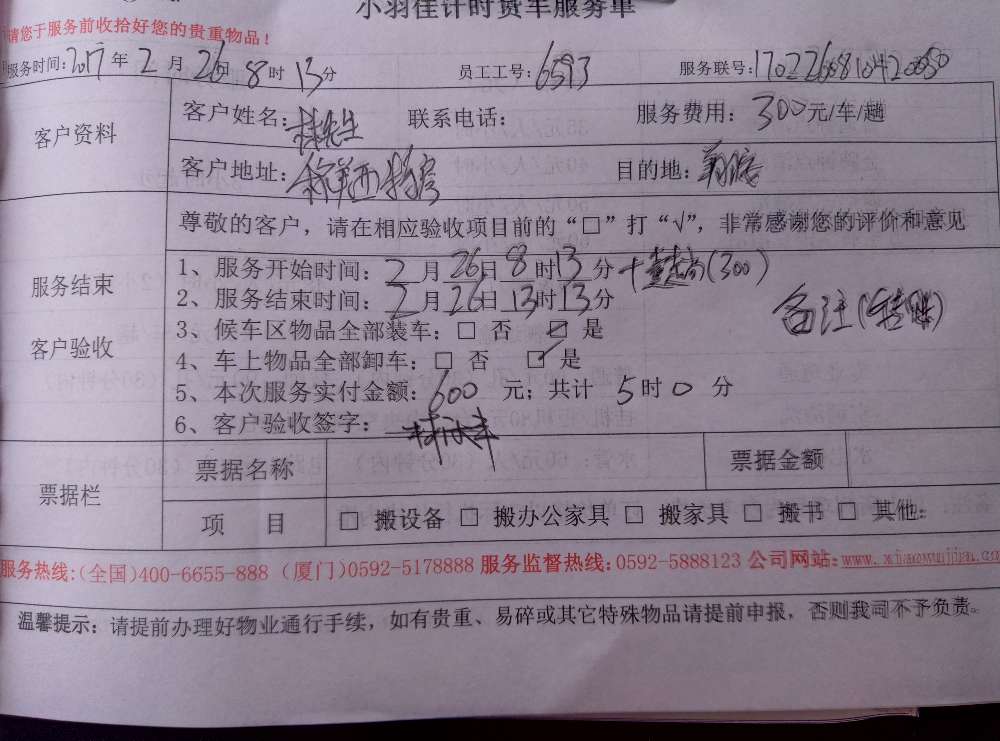 小羽佳计时货车服务单
请您于服务前收拾好您的贵重物品！
服务时间：2017年2月26日8时13分 员工工号：6593 服务联号：
客户资料
客户姓名：林先生 联系电话： 服务费用：300元/车/趟
客户地址： 目的地：
尊敬的客户，请在相应验收项目前的“□”打“√”，非常感谢您的评价和意见
服务结束
客户验收
1、服务开始时间：2月26日8时13分 (300)
2、服务结束时间：2月26日13时13分
备注(转账)
3、候车区物品全部装车：□ 否 ☑ 是
4、车上物品全部卸车：□ 否 ☑ 是
5、本次服务实付金额：600元；共计5时0分
6、客户验收签字：
票据栏
票据名称 票据金额
项 目 □ 搬设备 □ 搬办公家具 □ 搬家具 □ 搬书 □ 其他：
服务热线：(全国)400-6655-888 (厦门)0592-5178888 服务监督热线：0592-5888123 公司网站：www.xiaowujija.co
温馨提示：请提前办理好物业通行手续，如有贵重、易碎或其它特殊物品请提前申报，否则我司不予负责。